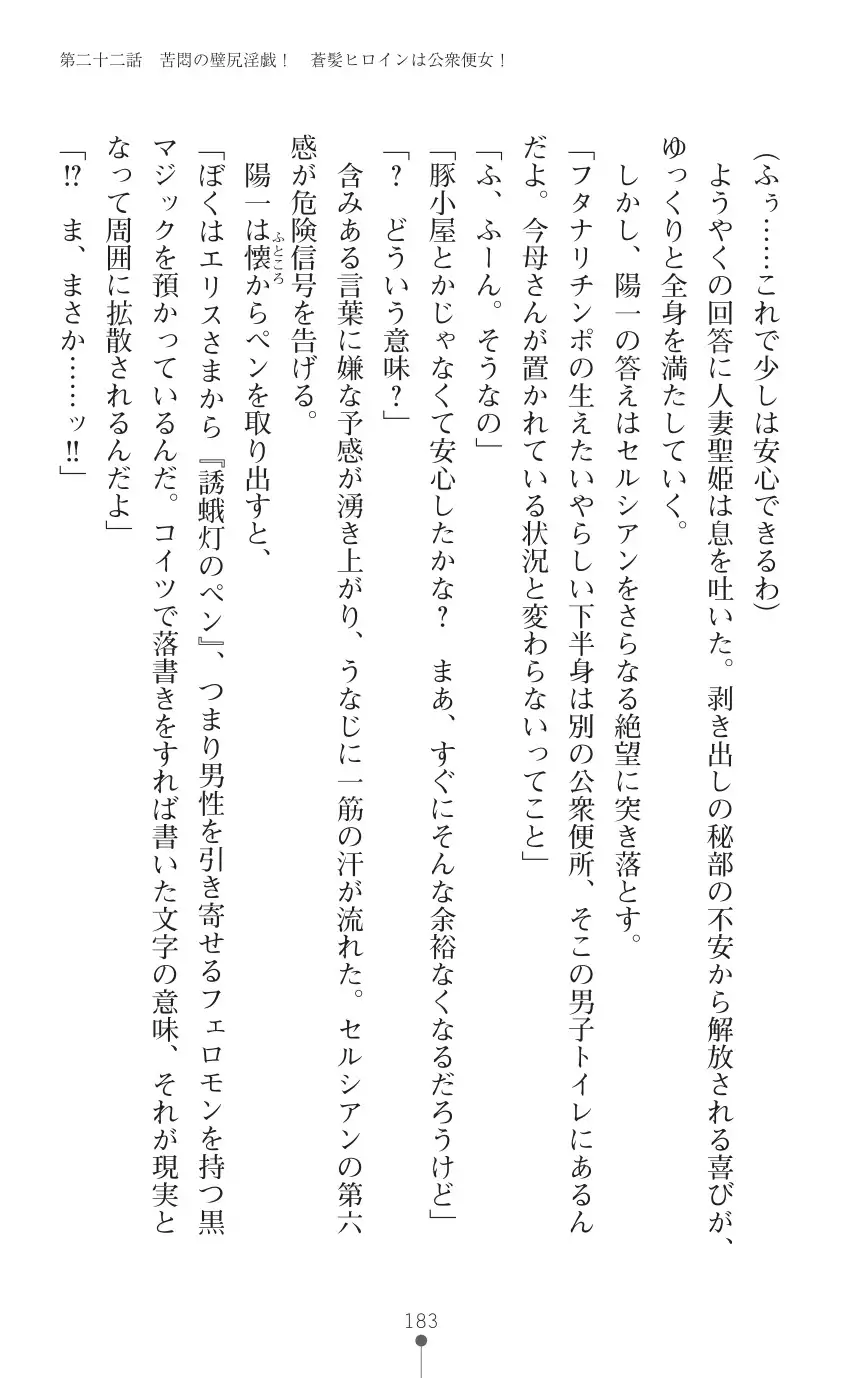 第二十二話　苦悶の壁尻淫戯！　蒼髪ヒロインは公衆便女！
（ふぅ……これで少しは安心できるわ）
　ようやくの回答に人妻聖姫は息を吐いた。剥き出しの秘部の不安から解放される喜びが、
ゆっくりと全身を満たしていく。
　しかし、陽一の答えはセルシアンをさらなる絶望に突き落とす。
「フタナリチンポの生えたいやらしい下半身は別の公衆便所、そこの男子トイレにあるん
だよ。今母さんが置かれている状況と変わらないってこと」
「ふ、ふーん。そうなの」
「豚小屋とかじゃなくて安心したかな？　まあ、すぐにそんな余裕なくなるだろうけど」
「？　どういう意味？」
　含みある言葉に嫌な予感が湧き上がり、うなじに一筋の汗が流れた。セルシアンの第六
感が危険信号を告げる。
　陽一は懐からペンを取り出すと、
ふところ
「ぼくはエリスさまから『誘蛾灯のペン』、つまり男性を引き寄せるフェロモンを持つ黒
マジックを預かっているんだ。コイツで落書きをすれば書いた文字の意味、それが現実と
なって周囲に拡散されるんだよ」
「!?　ま、まさか……ッ!!」
183